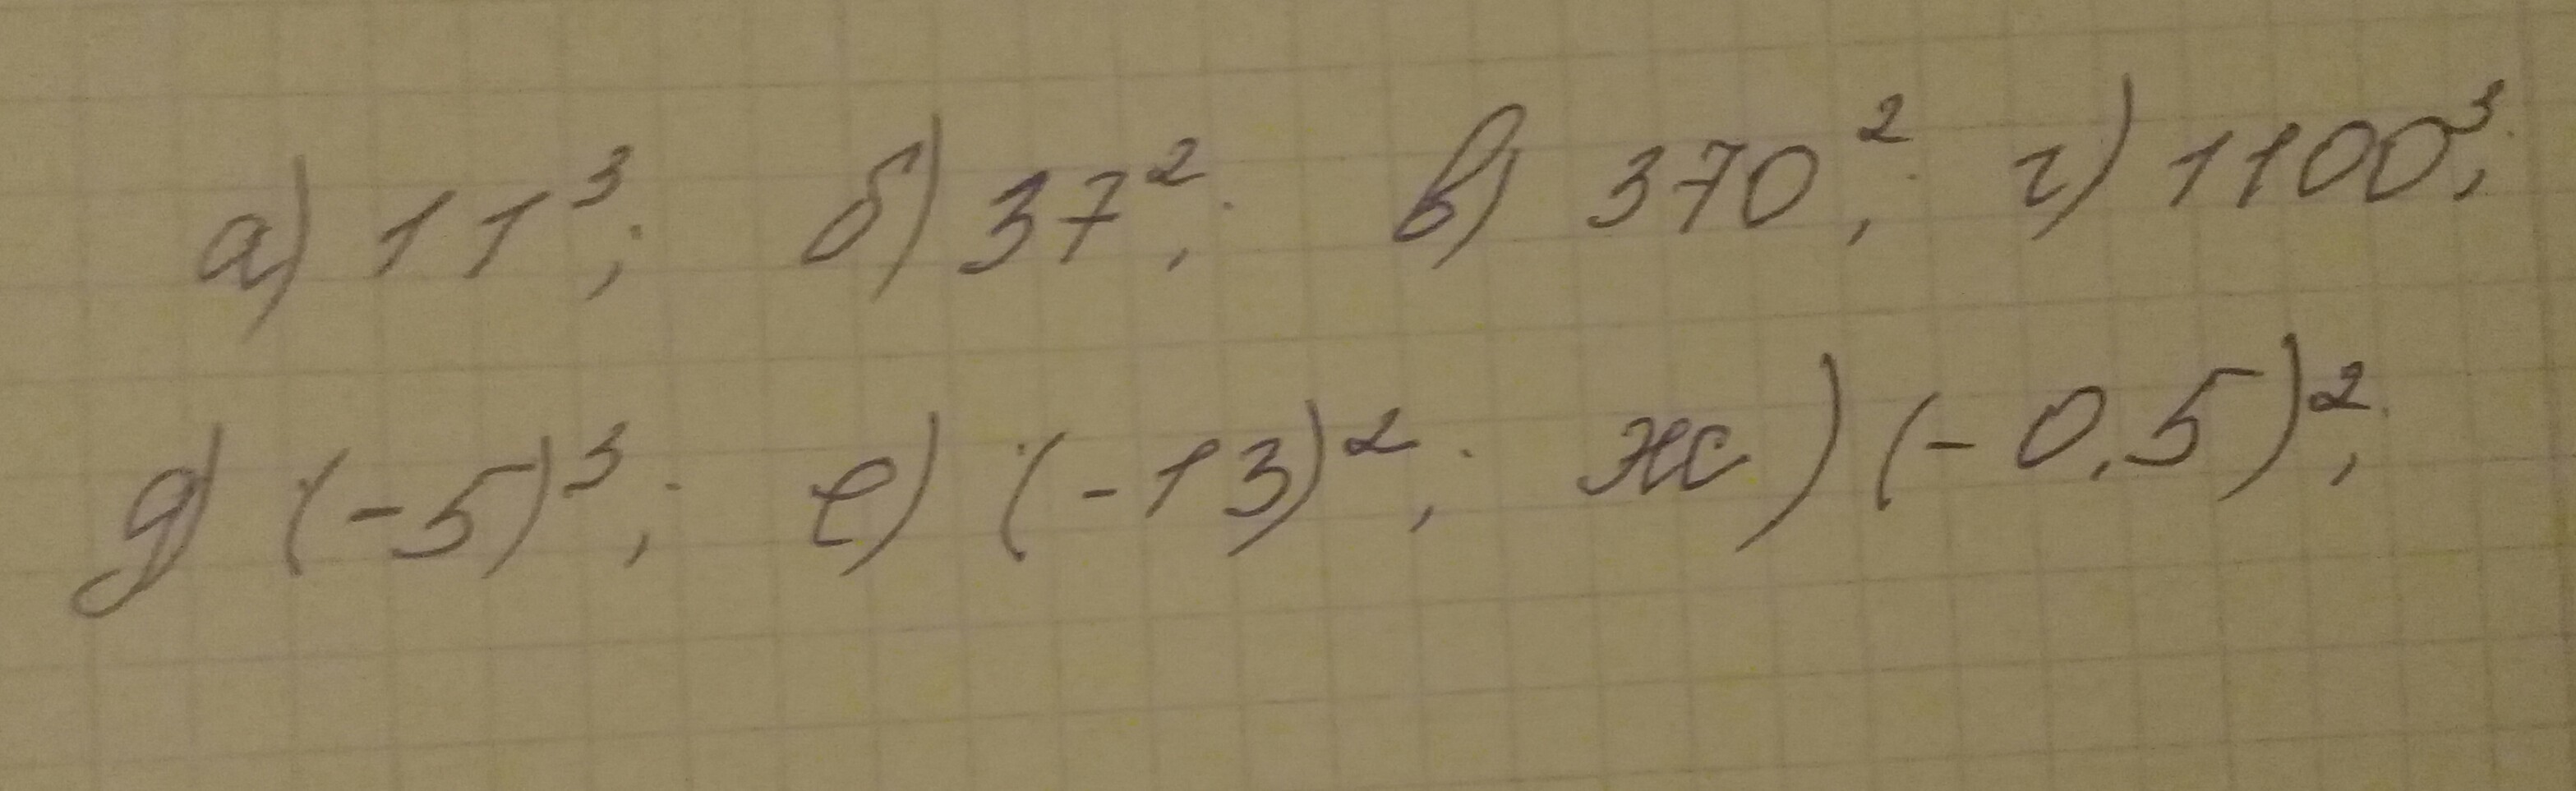 а) 11³; б) 37²; в) 370²; г) 1100³;
д) (-5)³; е) (-13)²; ж) (-0,5)²;